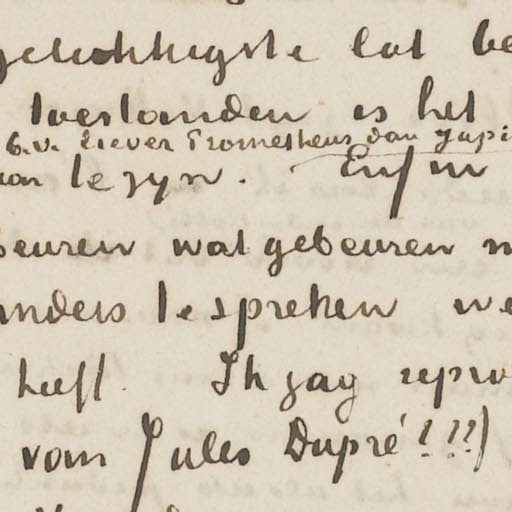 gelukkigste lot be
toestanden is het
b.v. liever Prometheus dan Jupi
te zyn. Enfin
beuren wat gebeuren m
anders te spreken we
heeft. Ik zag repro
van Jules Dupré!!!)